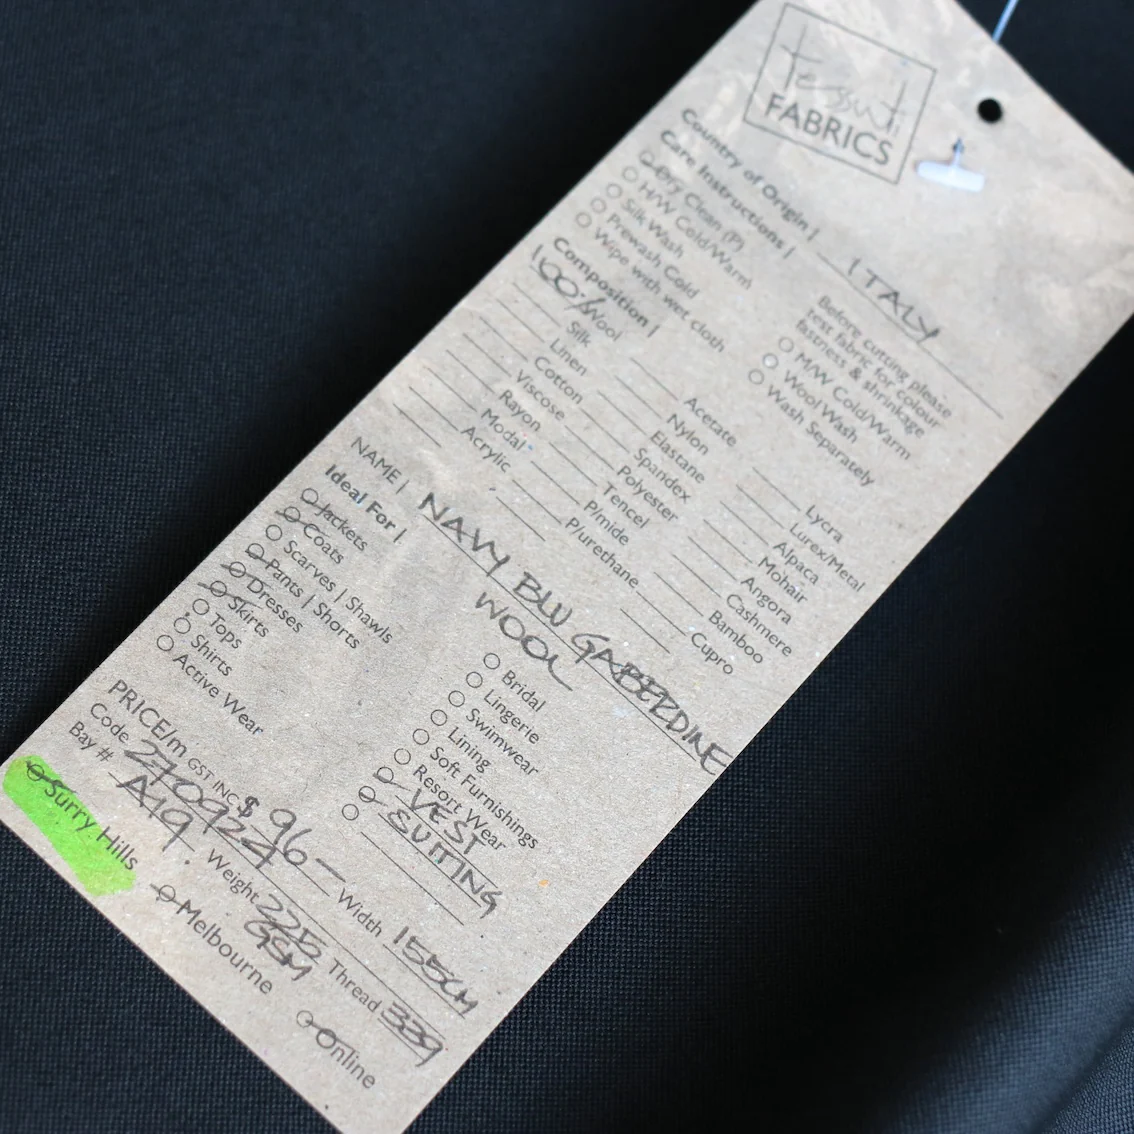 tessuti
FABRICS
Country of Origin | ITALY
Care Instructions |
Dry Clean (P)
H/W Cold/Warm
Silk Wash
Prewash Cold
Wipe with wet cloth
Before cutting please
test fabric for colour
fastness & shrinkage
M/W Cold/Warm
Wool Wash
Wash Separately
Composition |
100% Wool
Silk
Linen
Cotton
Viscose
Rayon
Modal
Acrylic
Acetate
Nylon
Elastane
Spandex
Polyester
Tencel
P/mide
P/urethane
Lycra
Lurex/Metal
Alpaca
Mohair
Angora
Cashmere
Bamboo
Cupro
NAME | NAVY BLU GABERDINE
WOOL
Ideal For |
Jackets
Coats
Scarves | Shawls
Pants | Shorts
Dresses
Skirts
Tops
Shirts
Active Wear
Bridal
Lingerie
Swimwear
Lining
Soft Furnishings
Resort Wear
VEST
SUITING
PRICE/m GST INC $ 96– Width 155CM
Code 270924 Weight 225 GSM Thread 339
Bay # A19.
Surry Hills
Melbourne
Online